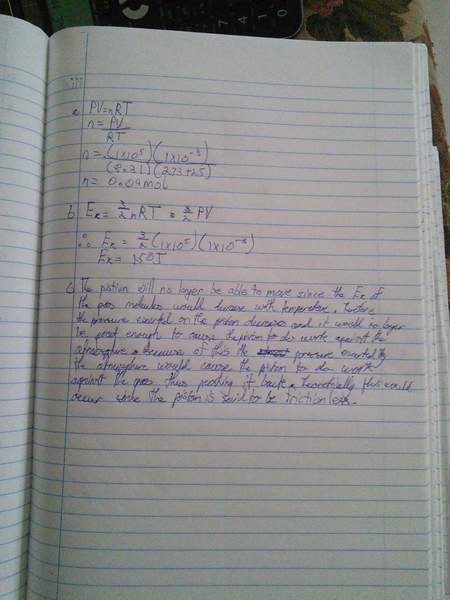 7410
a PV=nRT
n= PV
RT
n= (1x10⁵)(1x10⁻³)
(8.31)(273+25)
n= 0.04mol
b Eₖ= 3/2 nRT = 3/2 PV
∴ Eₖ = 3/2 (1x10⁵)(1x10⁻³)
Eₖ = 150J
c) The pistion will no longer be able to move since the Eₖ of
the gas molecules would decrease with temperature,
the pressure exerted on the piston decreases and it would no longer
be great enough to cause the piston to do work against the
atmosphere. Because of this the pressure exerted by
the atmosphere would cause the piston to do work
against the gas, thus pushing it back. Theoretically this could
occur since the piston is said to be frictionless.